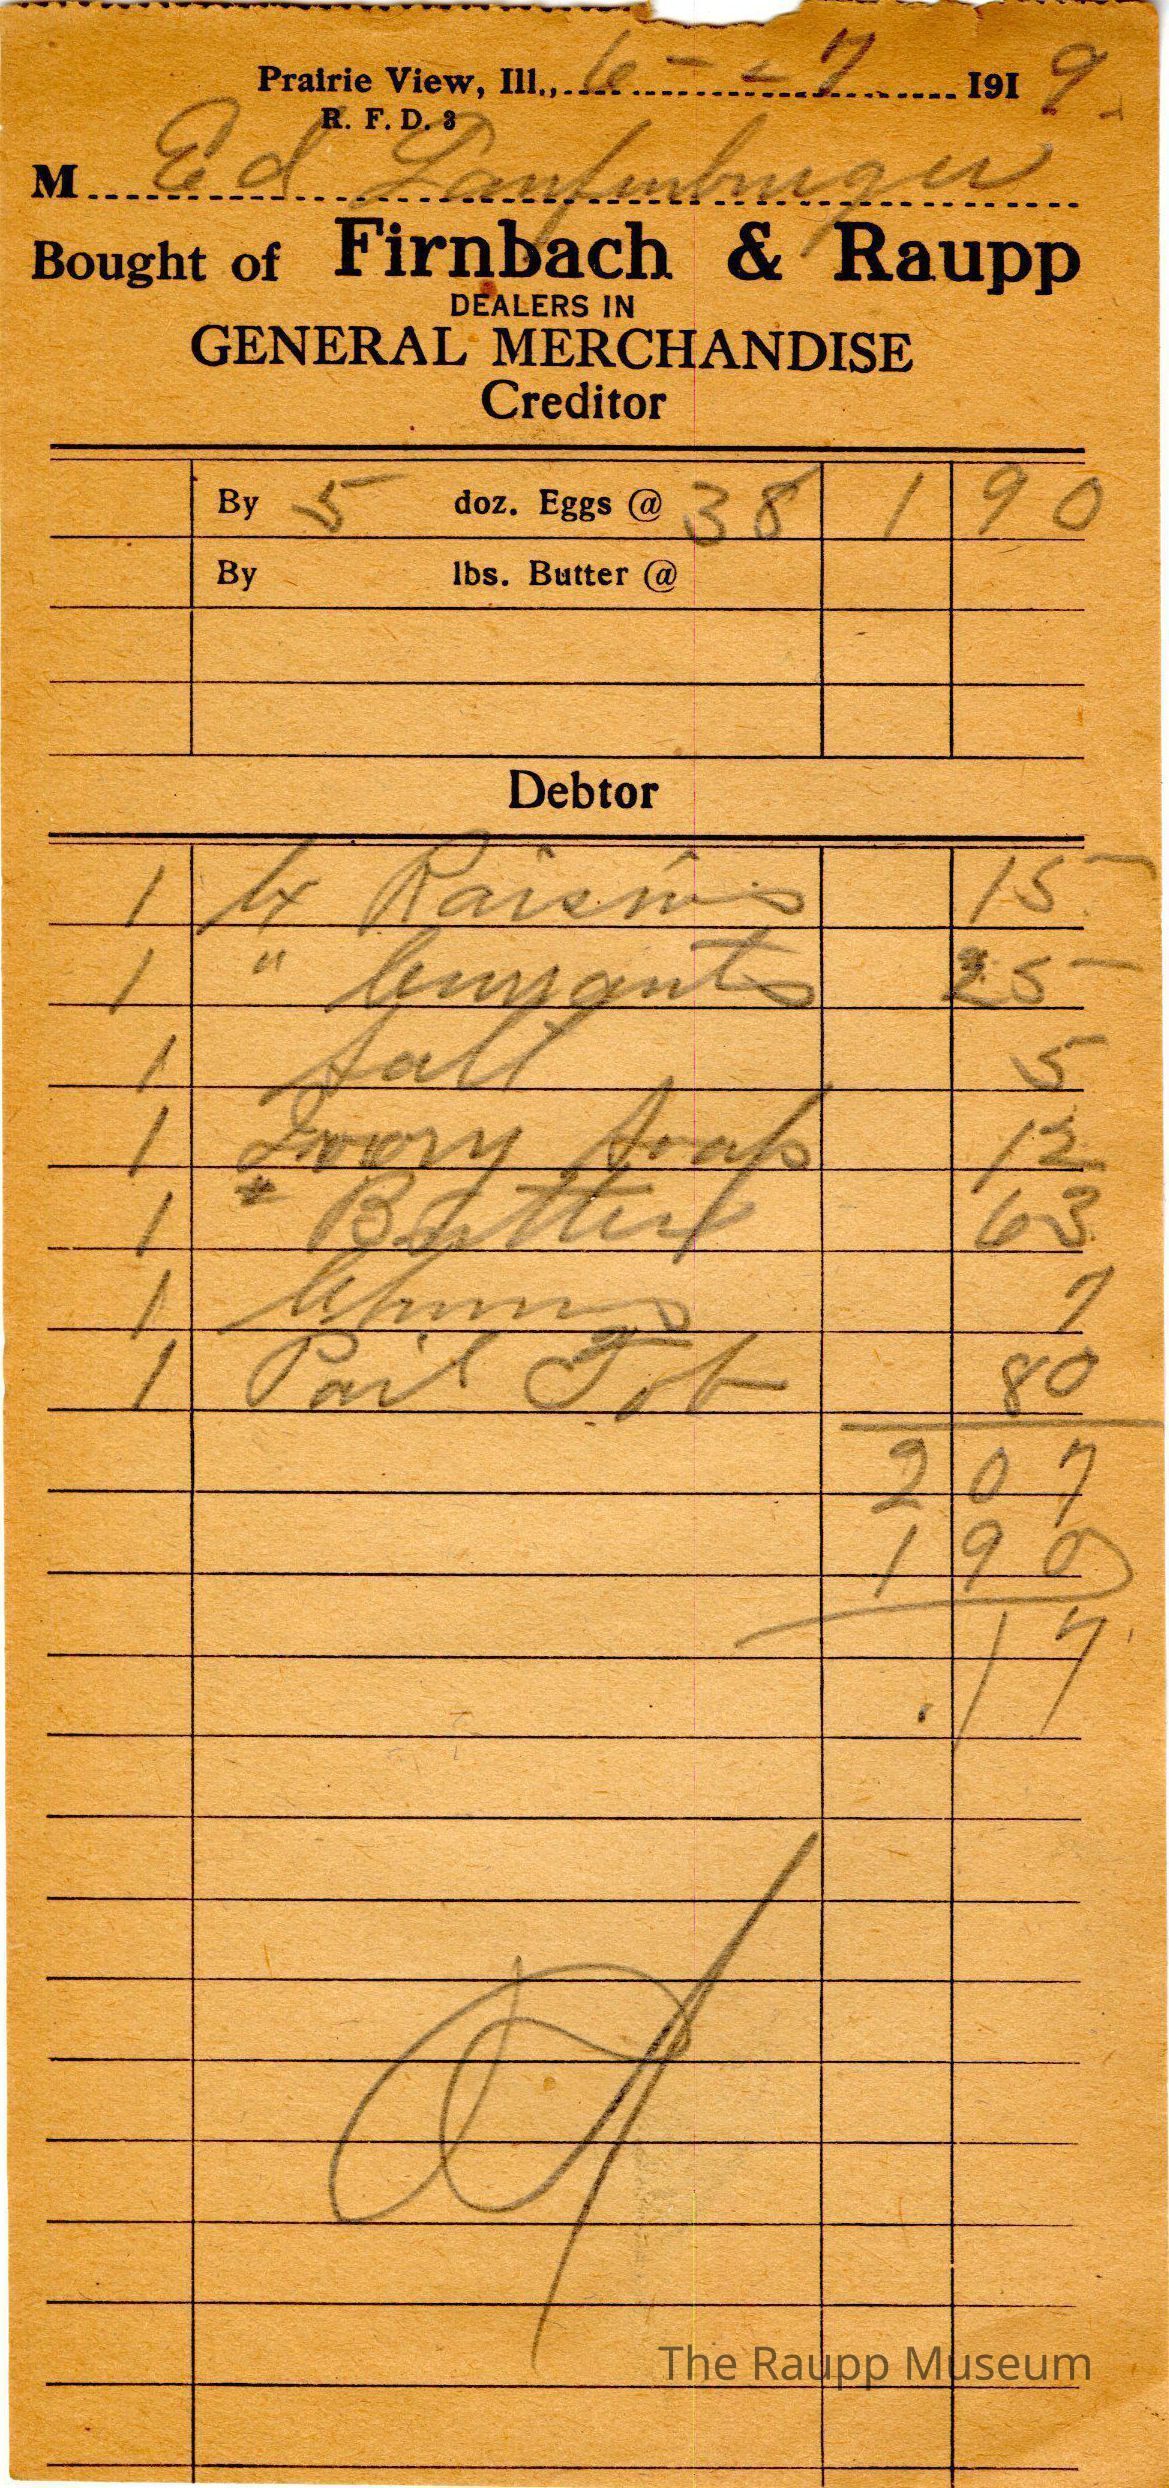 Prairie View, Ill., 6 - - 7 1919.
R. F. D. 3
M Ed Laufenburger
Bought of Firnbach & Raupp
DEALERS IN
GENERAL MERCHANDISE
Creditor
By 5 doz. Eggs @ 38 1 90
By lbs. Butter @
Debtor
1 Raisins 15
1 " Currants 25
1 Salt 5
1 Ivory Soap 12
1 # Butter 63
1 7
1 Pail Tob 80
2 07
1 90
.17
The Raupp Museum